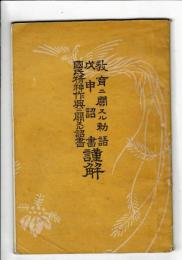 教育ニ關スル勅語
戊申詔書謹解
國民精神作興ニ關スル詔書